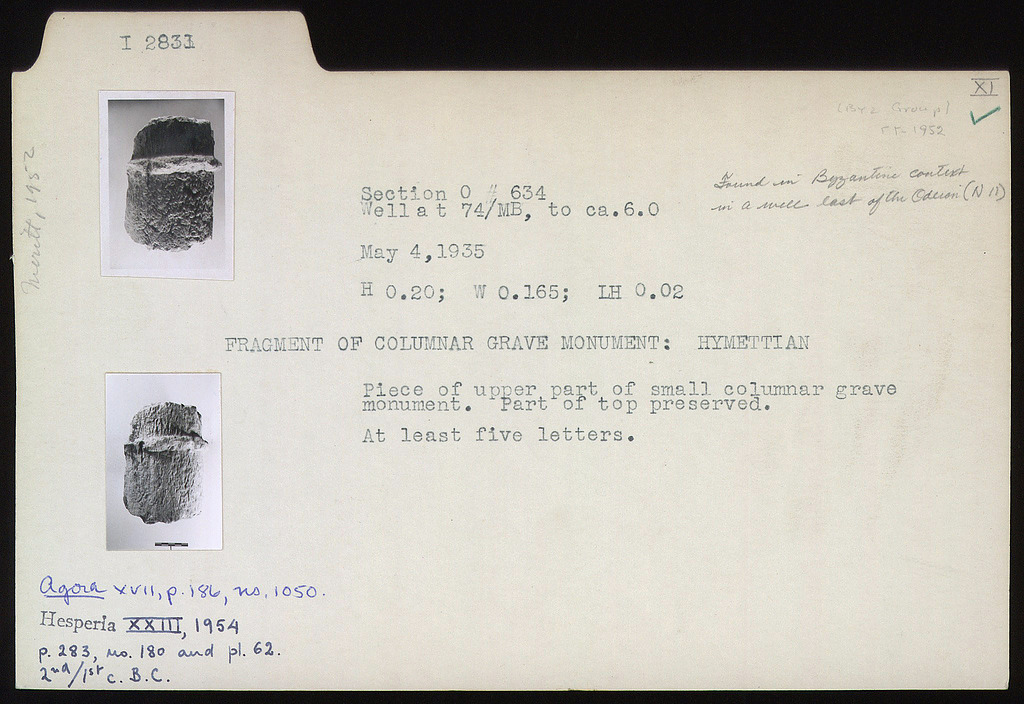 I 2831
XI
(Byz Group)
1952
Meritt, 1952
Section O # 634
Well at 74/MB, to ca.6.0
Found in Byzantine context
in a well east of the Odeion (N 11)
May 4,1935
H 0.20; W 0.165; LH 0.02
FRAGMENT OF COLUMNAR GRAVE MONUMENT: HYMETTIAN
Piece of upper part of small columnar grave
monument. Part of top preserved.
At least five letters.
Agora XVII, p. 186, no. 1050.
Hesperia XXIII, 1954
p. 283, no. 180 and pl. 62.
2nd/1st c. B.C.